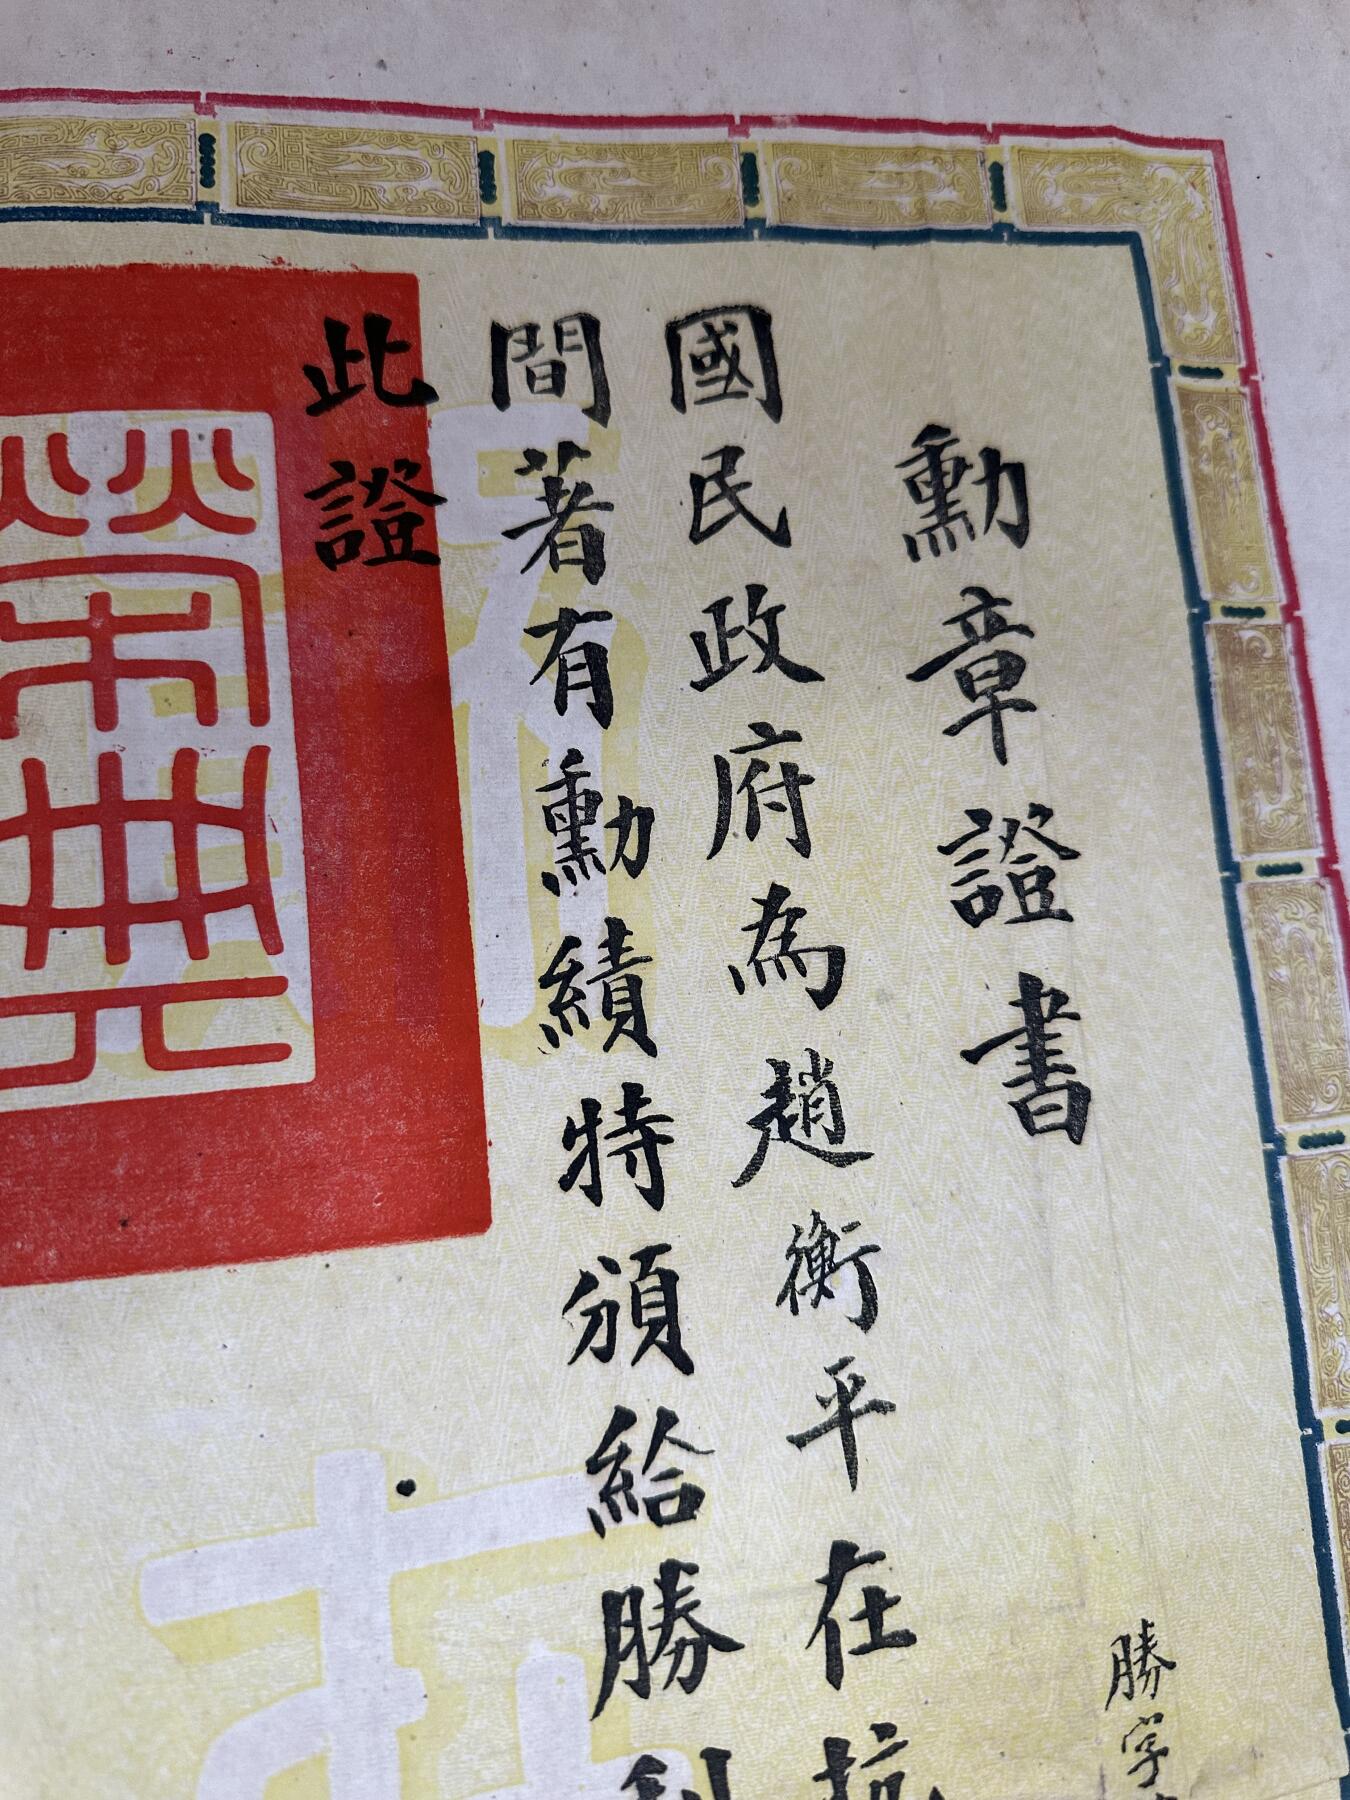 勳章證書
國民政府為趙衡平在抗
間著有勳績特頒給勝利
此證
勝字
榮典